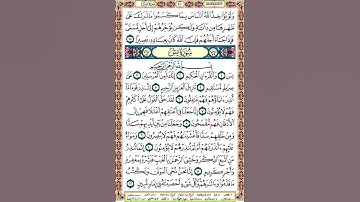 وَلَوْ يُؤَاخِذُ اللَّهُ النَّاسَ بِمَا كَسَبُوا مَا تَرَكَ عَلَىٰ
ظَهْرِهَا مِن دَابَّةٍ وَلَٰكِن يُؤَخِّرُهُمْ إِلَىٰ أَجَلٍ مُّسَمًّى
فَإِذَا جَاءَ أَجَلُهُمْ فَإِنَّ اللَّهَ كَانَ بِعِبَادِهِ بَصِيرًا
سُورَةُ يس
بِسْمِ اللَّهِ الرَّحْمَٰنِ الرَّحِيمِ
يس وَالْقُرْآنِ الْحَكِيمِ إِنَّكَ لَمِنَ الْمُرْسَلِينَ عَلَىٰ
صِرَاطٍ مُّسْتَقِيمٍ تَنزِيلَ الْعَزِيزِ الرَّحِيمِ لِتُنذِرَ قَوْمًا مَّا
أُنذِرَ آبَاؤُهُمْ فَهُمْ غَافِلُونَ لَقَدْ حَقَّ الْقَوْلُ عَلَىٰ أَكْثَرِهِمْ
فَهُمْ لَا يُؤْمِنُونَ إِنَّا جَعَلْنَا فِي أَعْنَاقِهِمْ أَغْلَالًا فَهِيَ إِلَى
الْأَذْقَانِ فَهُم مُّقْمَحُونَ وَجَعَلْنَا مِن بَيْنِ أَيْدِيهِمْ سَدًّا
وَمِنْ خَلْفِهِمْ سَدًّا فَأَغْشَيْنَاهُمْ فَهُمْ لَا يُبْصِرُونَ وَسَوَاءٌ
عَلَيْهِمْ أَأَنذَرْتَهُمْ أَمْ لَمْ تُنذِرْهُمْ لَا يُؤْمِنُونَ إِنَّمَا تُنذِرُ
مَنِ اتَّبَعَ الذِّكْرَ وَخَشِيَ الرَّحْمَٰنَ بِالْغَيْبِ فَبَشِّرْهُ بِمَغْفِرَةٍ
وَأَجْرٍ كَرِيمٍ إِنَّا نَحْنُ نُحْيِ الْمَوْتَىٰ وَنَكْتُبُ
مَا قَدَّمُوا وَآثَارَهُمْ وَكُلَّ شَيْءٍ أَحْصَيْنَاهُ فِي إِمَامٍ مُّبِينٍ